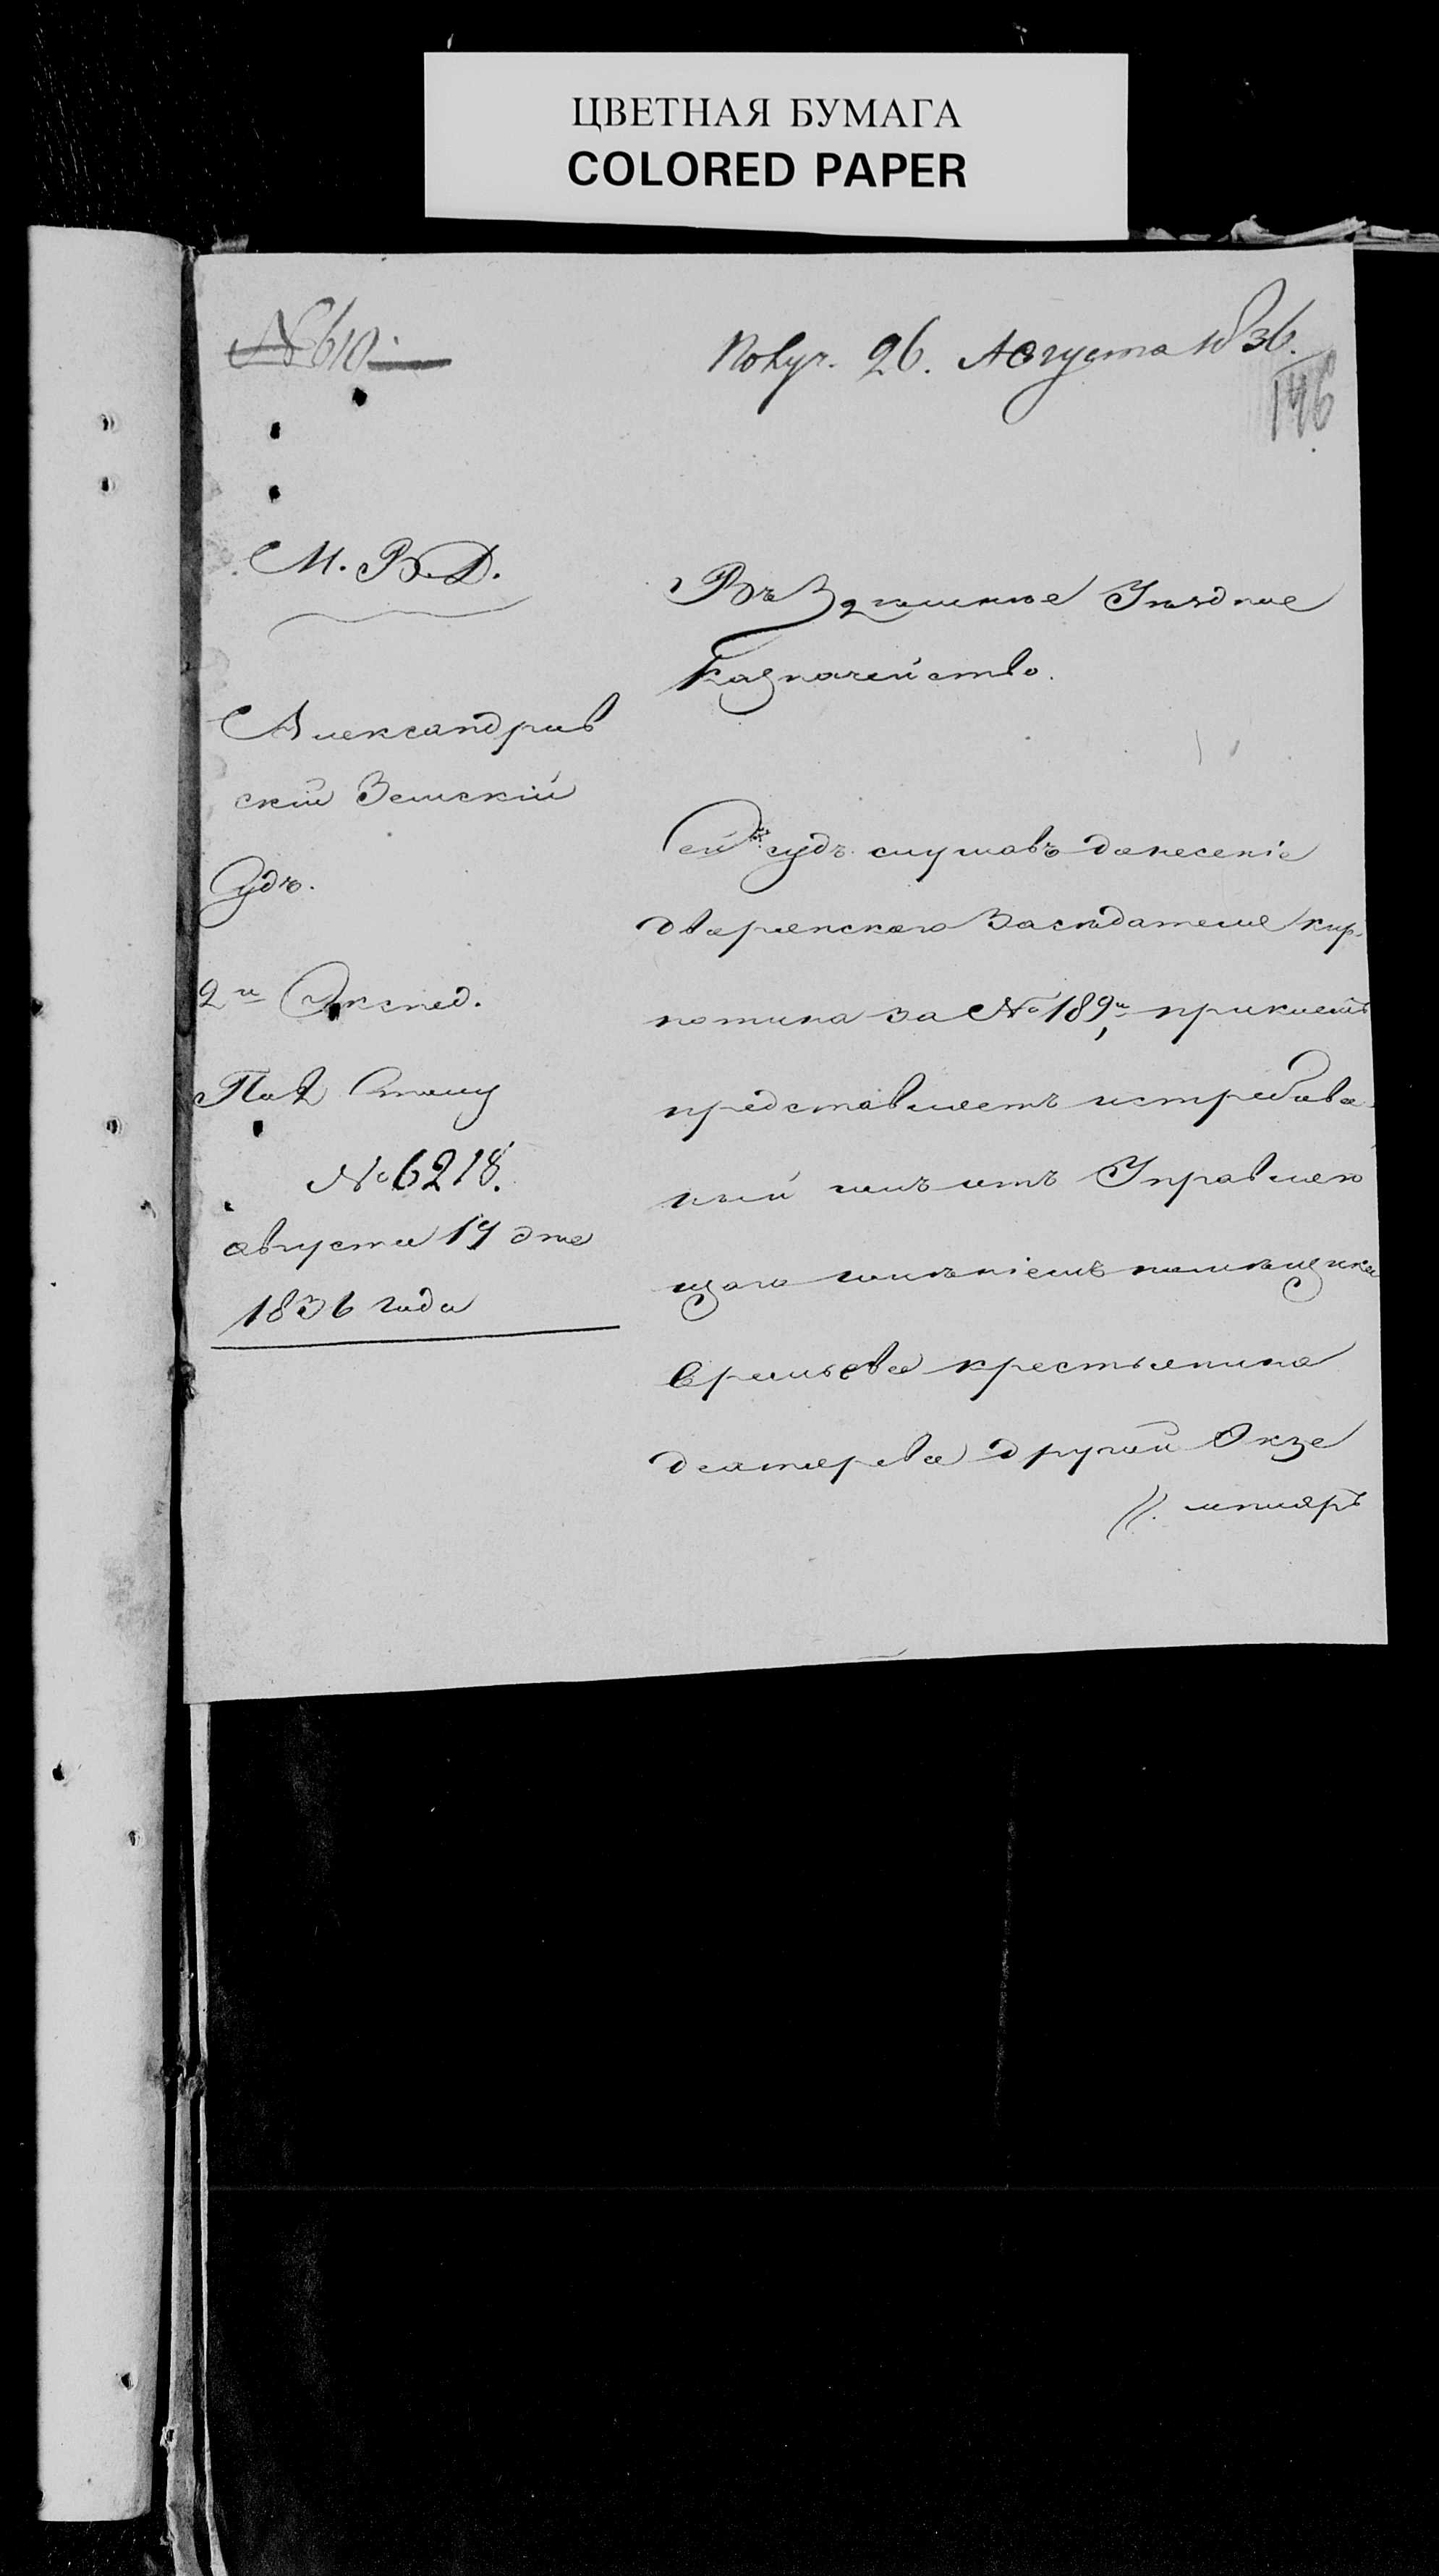 ЦВЕТНАЯ БУМАГА
COLORED PAPER
№ 610
Получ. 26. Августа 1836.
146
М. В. Д.
Александрив
скій Земскій
Судъ.
2й Экспед.
По 2 Столу
№ 6218.
августа 19 дня
1836 года
Въ Здешнее Уездное
Казначейство.
Сей судъ слушавъ донесеніе
дворянскаго Заседателя Кир-
потина за № 189м, при коемъ
представляетъ истребова-
ный имъ отъ Управляю
щаго именіемъ помещика
крестьянина
другой Экзе
//. мпляръ